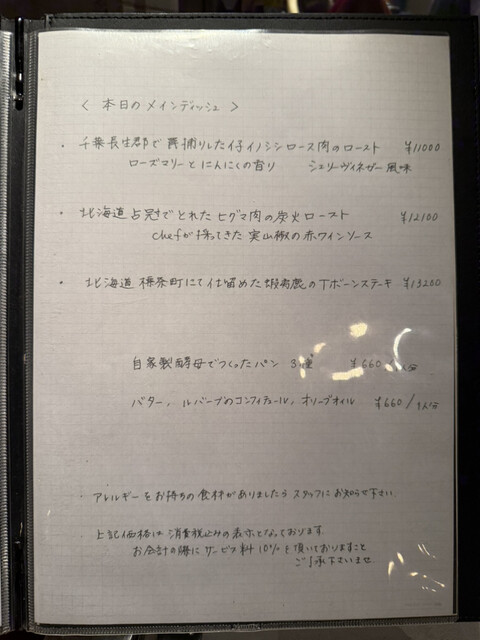 〈 本日のメインディッシュ 〉
・ 千葉長生郡で 捕りした仔イノシシロース肉のロースト ¥11000
ローズマリーとにんにくの香り シェリーヴィネガー風味
・ 北海道占冠でとれたヒグマ肉の炭火ロースト ¥12100
chefが採ってきた実山椒の赤ワインソース
・ 北海道 標茶町にて仕留めた蝦夷鹿のTボーンステーキ ¥13200
自家製酵母でつくったパン 3種 ¥660
バター、ルバーブのコンフィチュール、オリーブオイル ¥660/1人分
・ アレルギーをお持ちの食材がありましたらスタッフにお知らせ下さい
上記価格は消費税込みの表示となっております
お会計の際にサービス料10%を頂いておりますこと
ご了承下さいませ